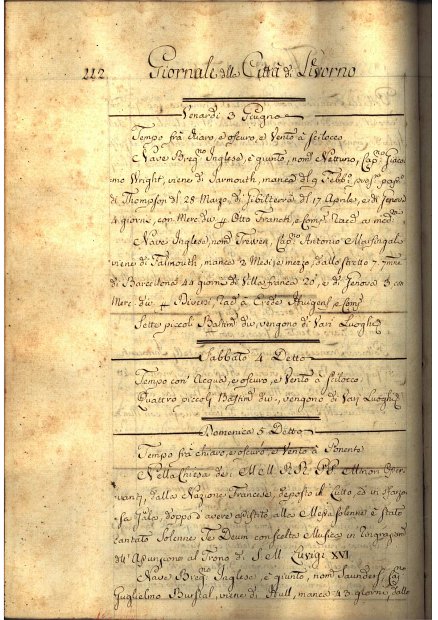 212 Giornale della Città di Livorno
Venardi 3 Giugno
Tempo frà chiaro, e oscuro, e Vento à Scilocco
Nave Breg.no Inglese, è giunto, nom.o Netturno, Cap.o Giaco
mo Wright, viene di Jarmouth, manca dal 9 Febb.o
di Thompson dal 28 Marzo, di Gibilterra dal 17 Aprile, e di Genova
4 giorni, con Merc. div. Otto Franck, e Comp.
Nave Inglese, nom.o Treven, Cap.o Antonio
viene di Falmouth, manca 2 Mesi, e mezzo, dallo stretto 7
di Barcellona 44 giorni, di Villa franca 20, e di Genova 3 con
Merc. div. Diversi, Eredi Huigens, e Comp.
Sette piccoli Bastim. div. vengono di Vari Luoghi
Sabbato 4 Detto
Tempo con Acqua, e oscuro, e Vento à Scilocco
Quattro piccoli Bastim. div. vengono di Vari Luoghi
Domenica 5 Detto
Tempo frà chiaro, e oscuro, e Vento à Ponente
Nella Chiesa dei M M. R. R. P.P. Minori Osser
vanti, dalla Nazione Francese, deposto il Lutto, ed in
sa Gala, doppo d'avere assistito alla Messa solenne è stato
Cantato Solenne Te Deum con scelta Musica in
d' Assunzione al Trono di S. M. Luvigi XVI
Nave Breg.no Inglese, è giunto, nom.o Saunders, Cap.
Guglielmo viene di Hull, manca 43 giorni, dallo